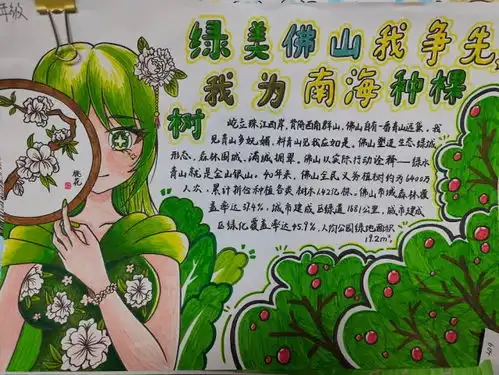 年级
绿美佛山我争先,
我为南海种棵
树
屹立珠江西岸,背倚西南群山,佛山自有一番青山远黛,我
见青山多妩媚,料青山见我应如是,佛山塑造生态绿城
形态,森林围城,满城拥翠,佛山以实际行动诠释——绿水
青山就是金山银山。如年来,佛山全民义务植树约为6400万
人次,累计折位种植各类树木1.42亿株,佛山市域森林覆
盖率达37.4%,城市建成区绿道1681公里,城市建成
区绿化覆盖率达45.9%,人均公园绿地面积
19.2m².
桃花